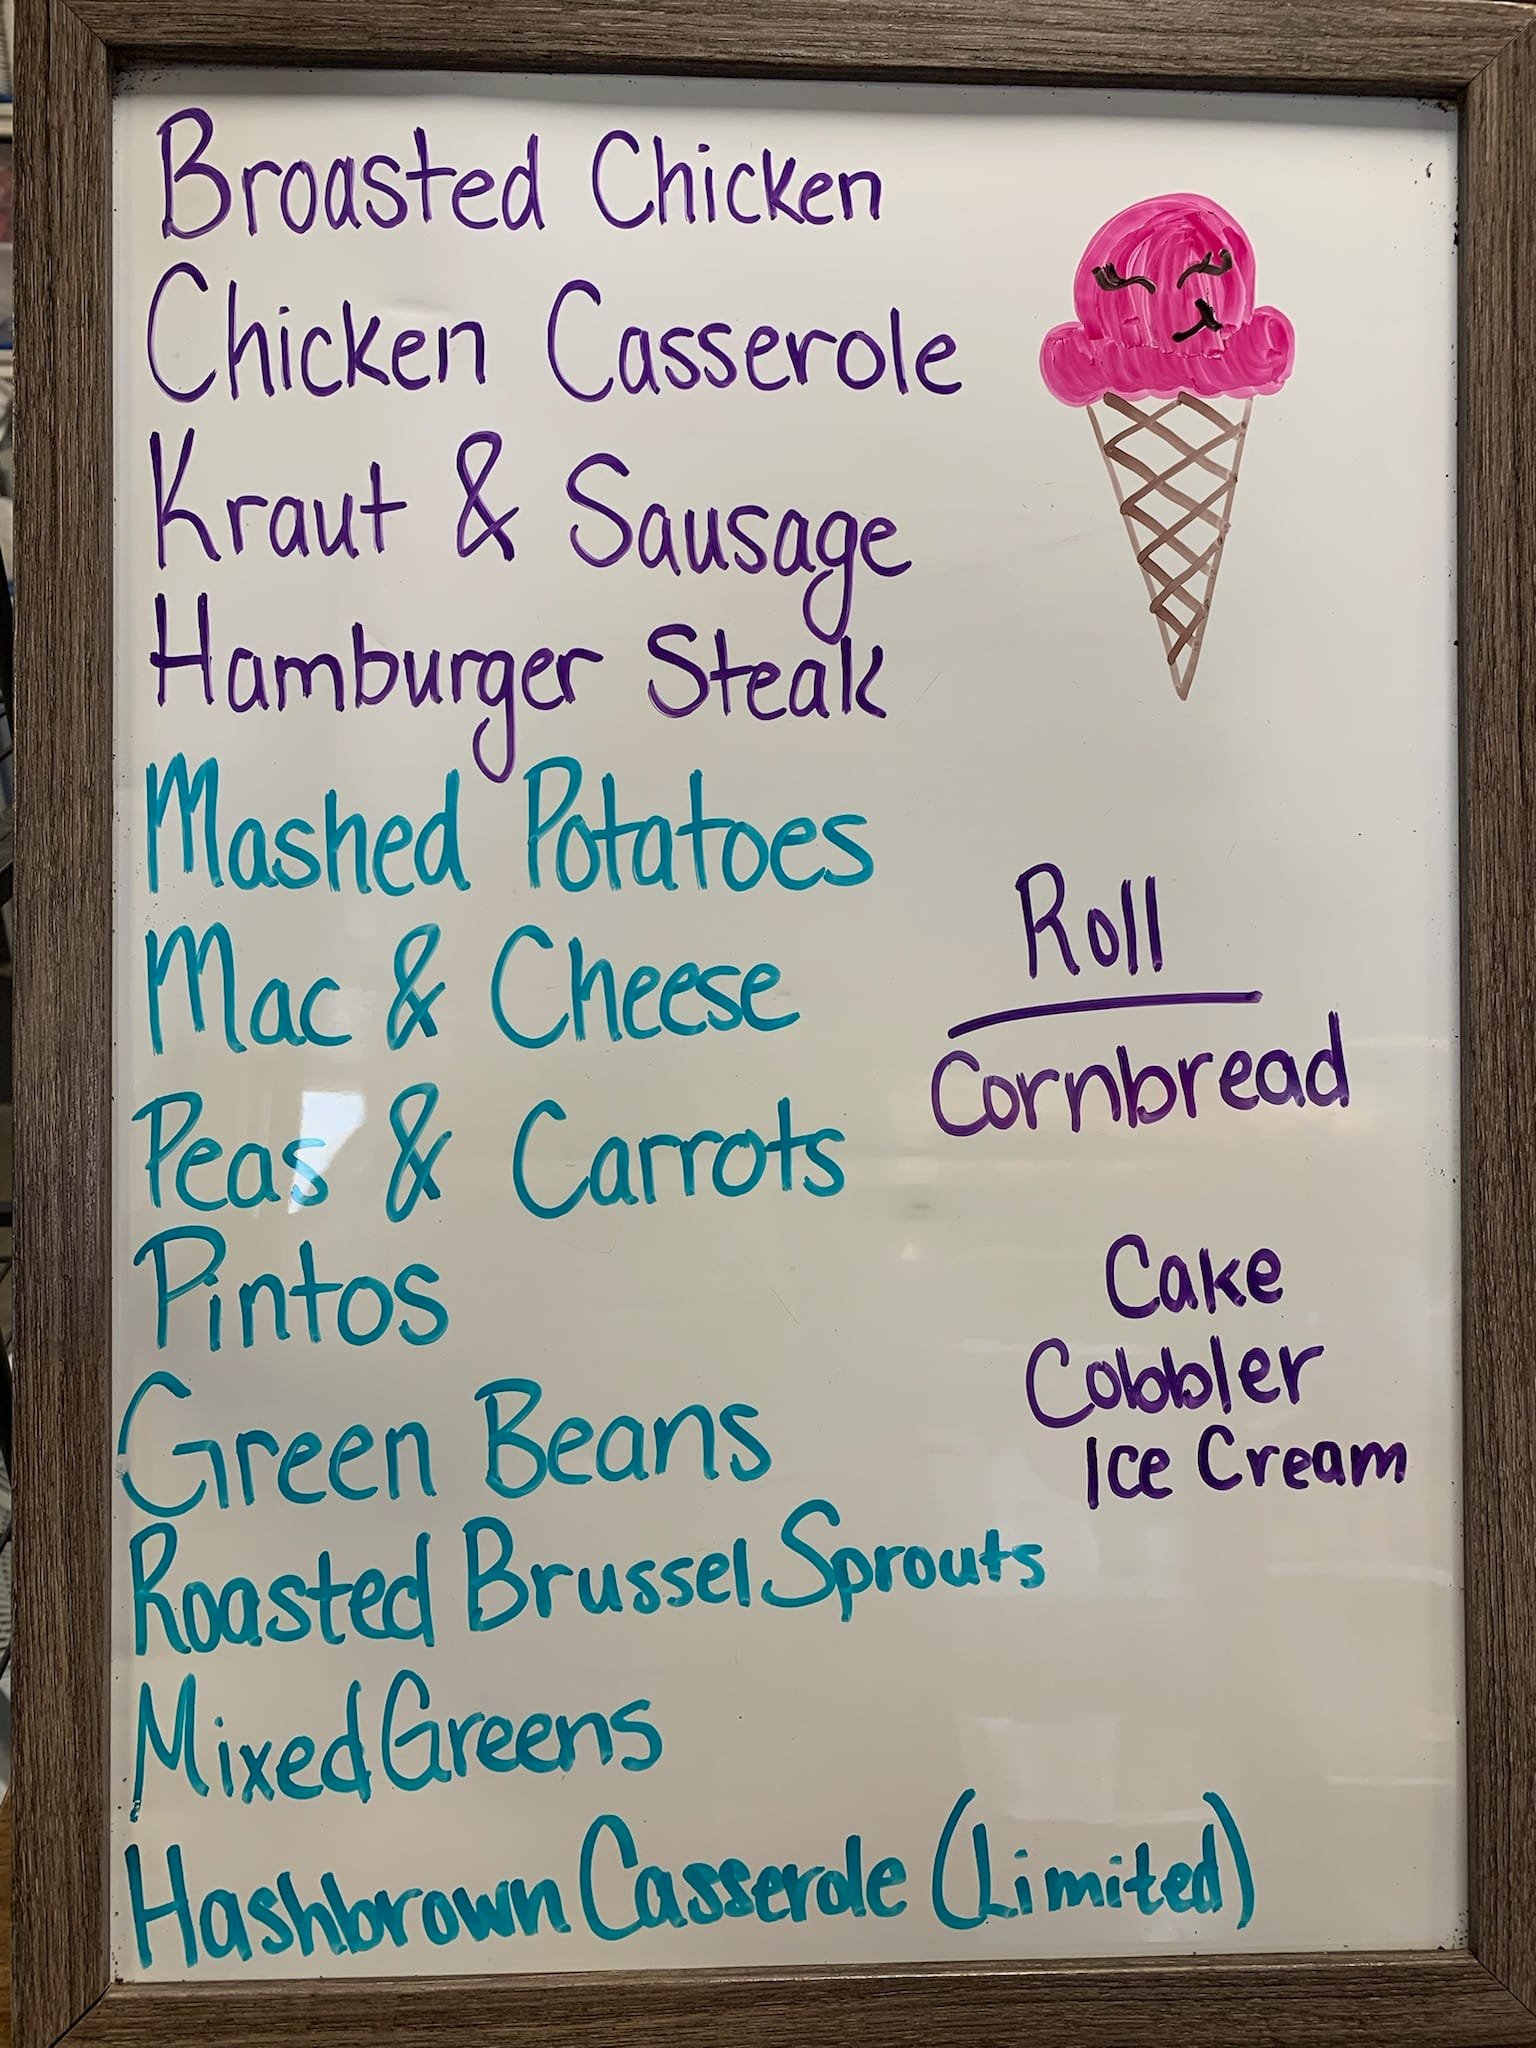 Broasted Chicken
Chicken Casserole
Kraut & Sausage
Hamburger Steak
Mashed Potatoes
Mac & Cheese
Peas & Carrots
Pintos
Green Beans
Roasted Brussel Sprouts
Mixed Greens
Hashbrown Casserole (Limited)
Roll
Cornbread
Cake
Cobbler
Ice Cream